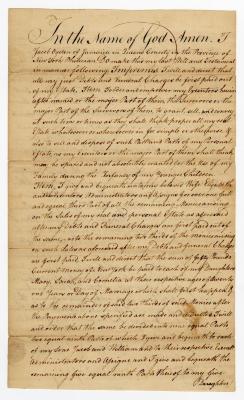 In the Name of God Amen. I
Jacob Ogden of Jamaica in Queens County in the Province of
New York Physician Do make this my last Will and Testament
in manner following Imprimis I will and direct that
all my just Debts and Funeral Charges be first paid out
of my Estate. Item I order and impower my Executors herein
after named or the major Part of them the Survivors or the
major Part of the Survivors of them to
at such time or times as they shall think proper all my real
Estate whatsoever or wheresoever in fee simple or otherwise &
also to sell and dispose of such Part and Parts of my Personal
Estate as my Executors or the major Part of them shall think
may be spared and not absolutely wanted for the Use of my
Family during the Infancy of my younger Children
Item, I give and bequeath unto my beloved Wife Elizabeth
and to her Executors Administrators and Assigns for ever one full
and equal third Part of all the remaining Monies arising
on the Sales of my real and personal Estate as aforesaid
after my Debts and Funeral Charges are first paid out of
the same, into the remaining two thirds of the Monies arising
on such Sales as aforesaid after my Debts and Funeral Charges
are first paid I will and direct that the sum of fifty Pounds
Current Money of New York be paid to each of my Daughters
Mary, Sarah, and Cornelia at their respective ages of twenty
one Years or Day of Marriage which shall first happen &
as to the remainder of said two thirds of said Monies after
the Payments above specified are made and I will
and order that the same be divided into equal Parts
two equal Parts of which I give and bequeath to each
of my Sons Jacob and William and to their respective Executors
Administrators and Assigns and I give and bequeath the
remaining five equal Parts thereof to my five
Daughters